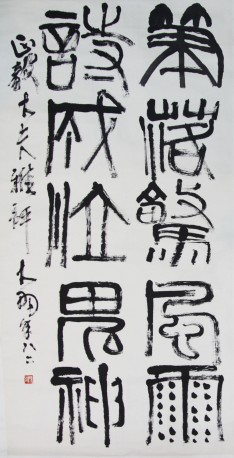 筆落驚風雨
詩成泣鬼神
正毅大夫雅評 年八六